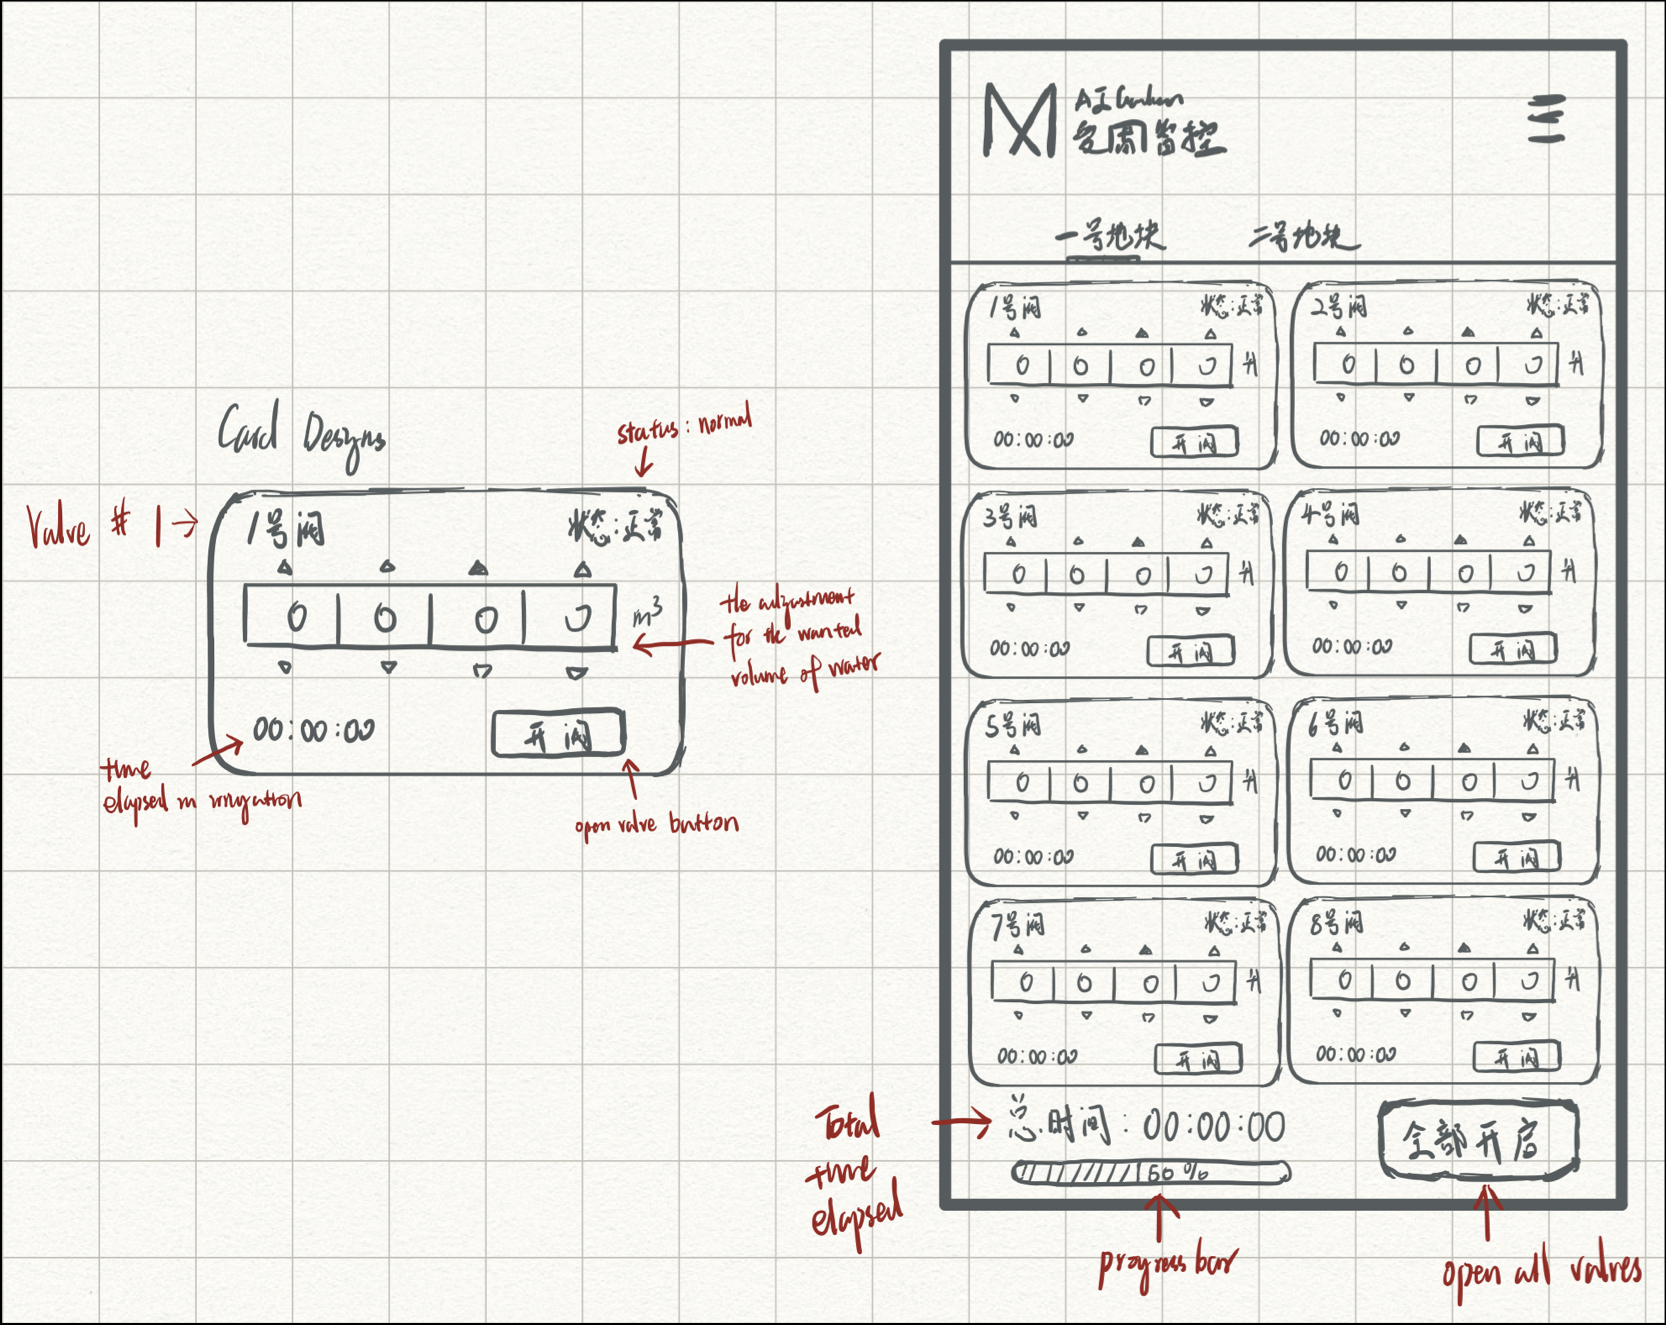 Card Designs
status: normal
Valve # 1
1号阀
状态:正常
0 0 0 0 m³
the adjustment
for the wanted
volume of water
00:00:00
开阀
time
elapsed in irrigation
open valve button
M
AI Garden
监控
一号地块
二号地块
1号阀 状态:正常
0 0 0 0 升
00:00:00 开阀
2号阀 状态:正常
0 0 0 0 升
00:00:00 开阀
3号阀 状态:正常
0 0 0 0 升
00:00:00 开阀
4号阀 状态:正常
0 0 0 0 升
00:00:00 开阀
5号阀 状态:正常
0 0 0 0 升
00:00:00 开阀
6号阀 状态:正常
0 0 0 0 升
00:00:00 开阀
7号阀 状态:正常
0 0 0 0 升
00:00:00 开阀
8号阀 状态:正常
0 0 0 0 升
00:00:00 开阀
Total
time
elapsed
总时间:00:00:00
50%
全部开启
progress bar
open all valves